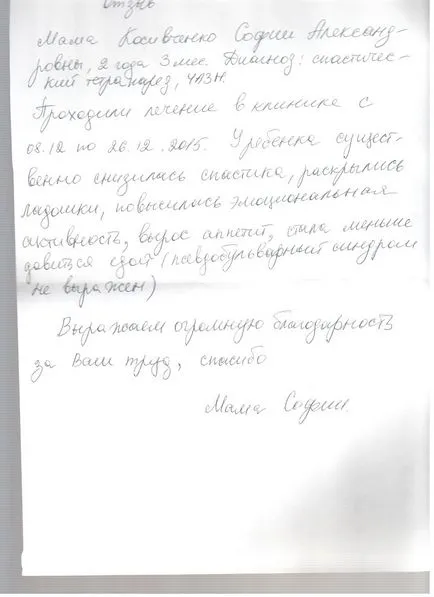 Отзыв
Мама Косивченко Софии Александ-
ровны, 2 года 3 мес. Диагноз: спастичес-
кий тетрапарез, ЧАЗН.
Проходили лечение в клинике с
08.12 по 26.12.2015. У ребенка сущест-
венно снизилась спастика, раскрылись
ладошки, повысилась эмоциональная
активность, вырос аппетит, стала меньше
давиться едой (псевдобульварный синдром
не выражен)
Выражаем огромную благодарность
за Ваш труд, спасибо
Мама Софии